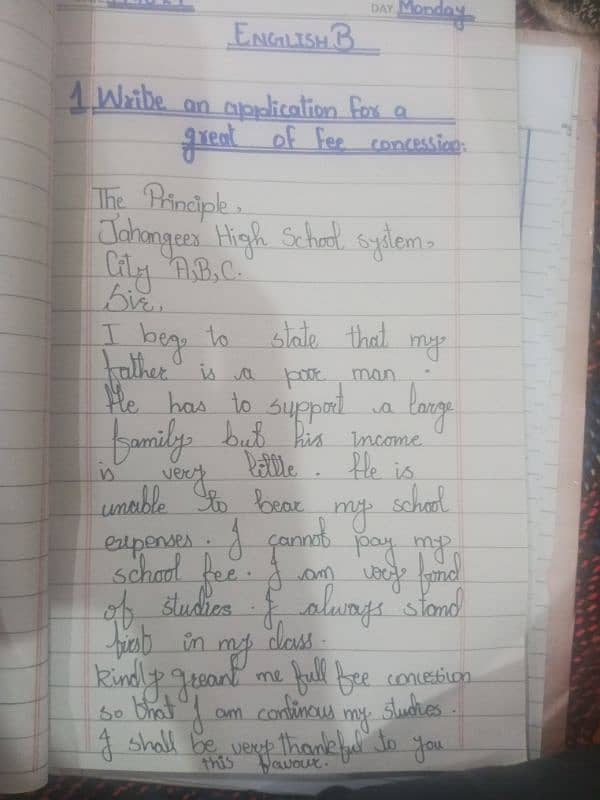 DAY Monday
ENGLISH B
1 Write an application for a
great of fee concession:
The Principle,
Jahangeer High School system,
City A,B,C.
Sir,
I beg to state that my
father is a poor man.
He has to support a large
family but his income
is very little. He is
unable to bear my school
expenses. I cannot pay my
school fee. I am very fond
of studies. I always stand
first in my class.
kindly greant me full fee concession
so that I am continous my studies.
I shall be very thankful to you
this favour.